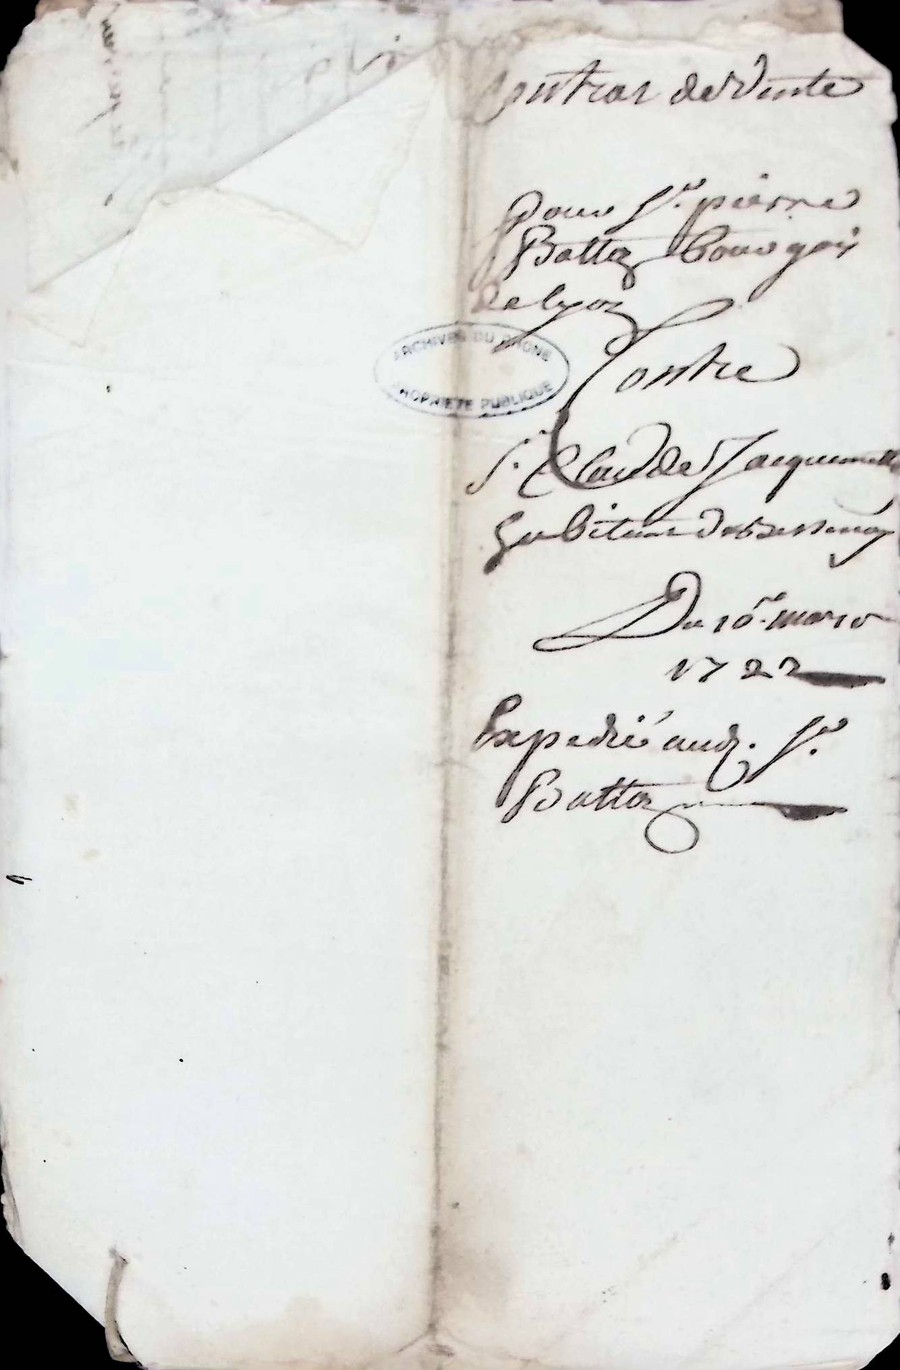 Contrat de Vente
Pour Sr. pierre
Battaz bourgois
de lyon
Contre
Sr. Claude Jacquemette
habitant de Bessenay
Du 10e. mars
1722
Expedié aud. Sr.
Battaz
ARCHIVES DU RHONE
PROPRIETE PUBLIQUE